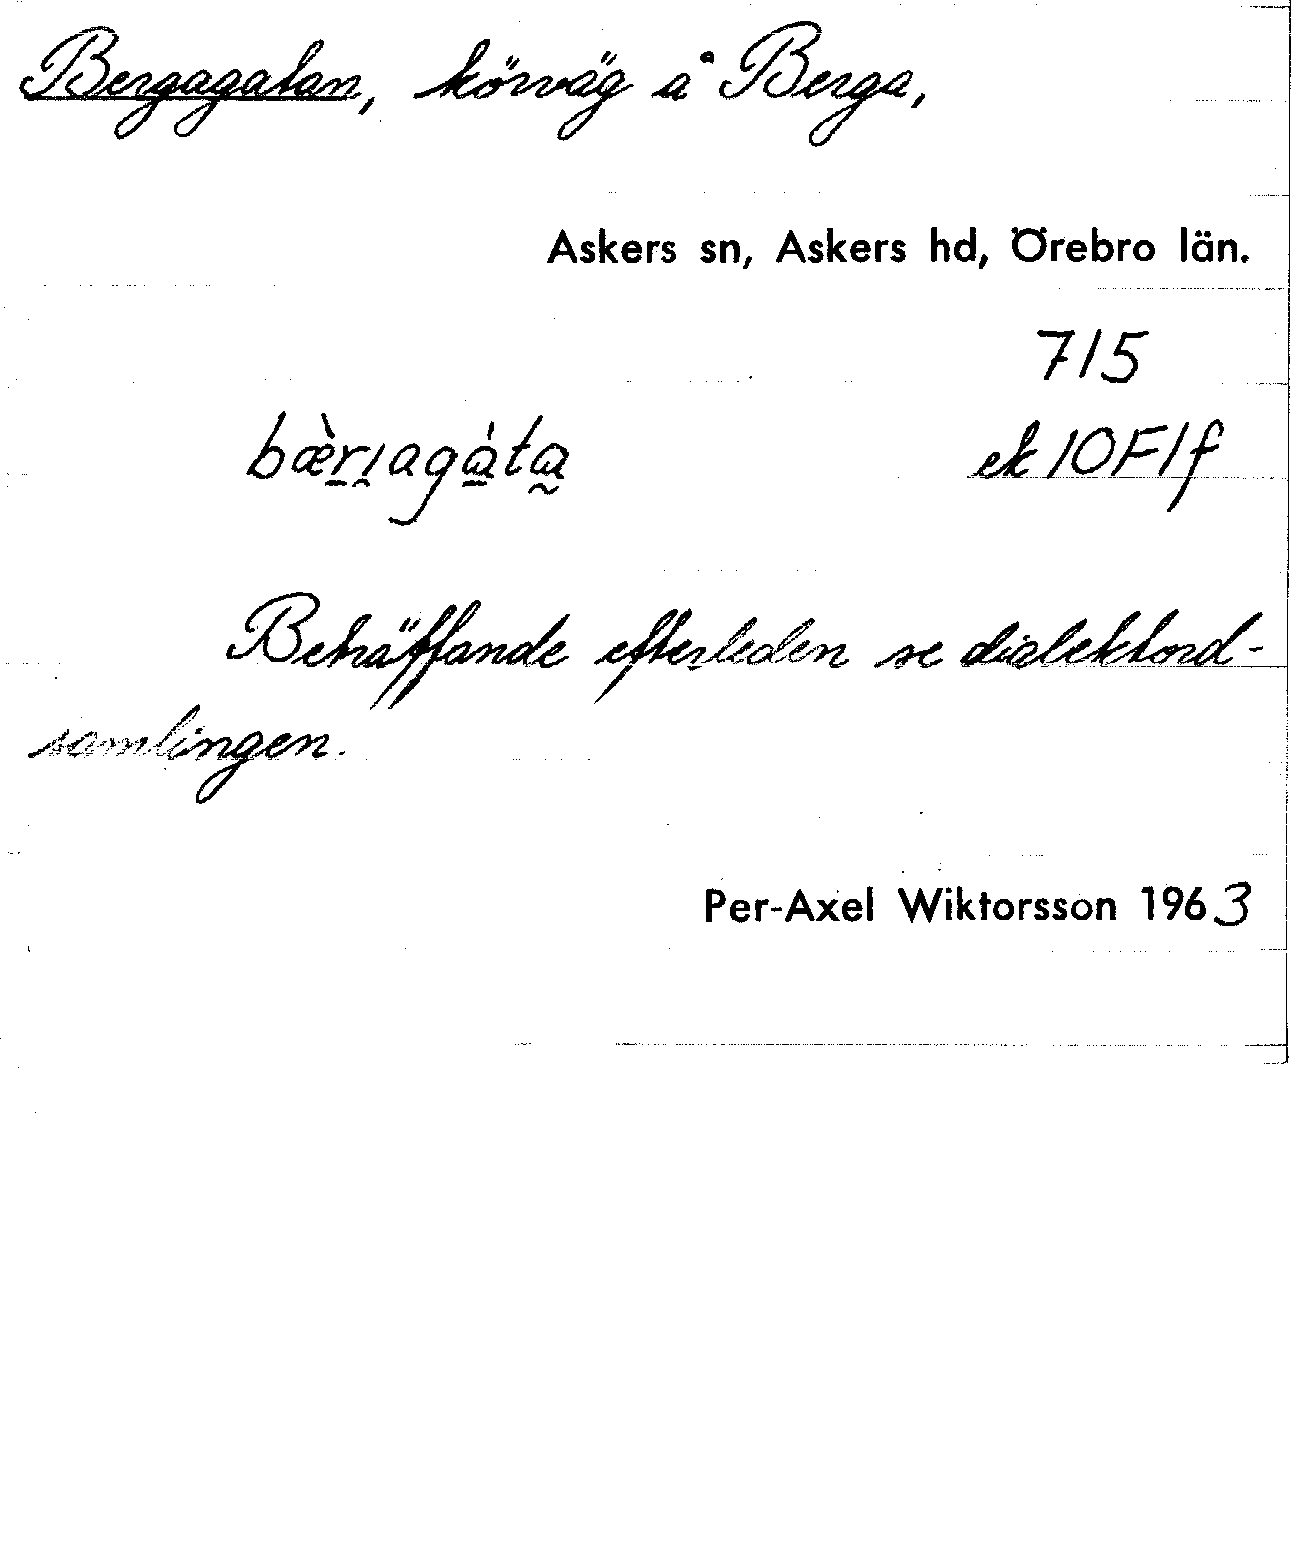 Bergagatan, körväg å Berga,
Askers sn, Askers hd, Örebro län.
715
bæ̀rıagàta ek 10F1f
Beträffande efterleden se dialektord-
samlingen.
Per-Axel Wiktorsson 1963